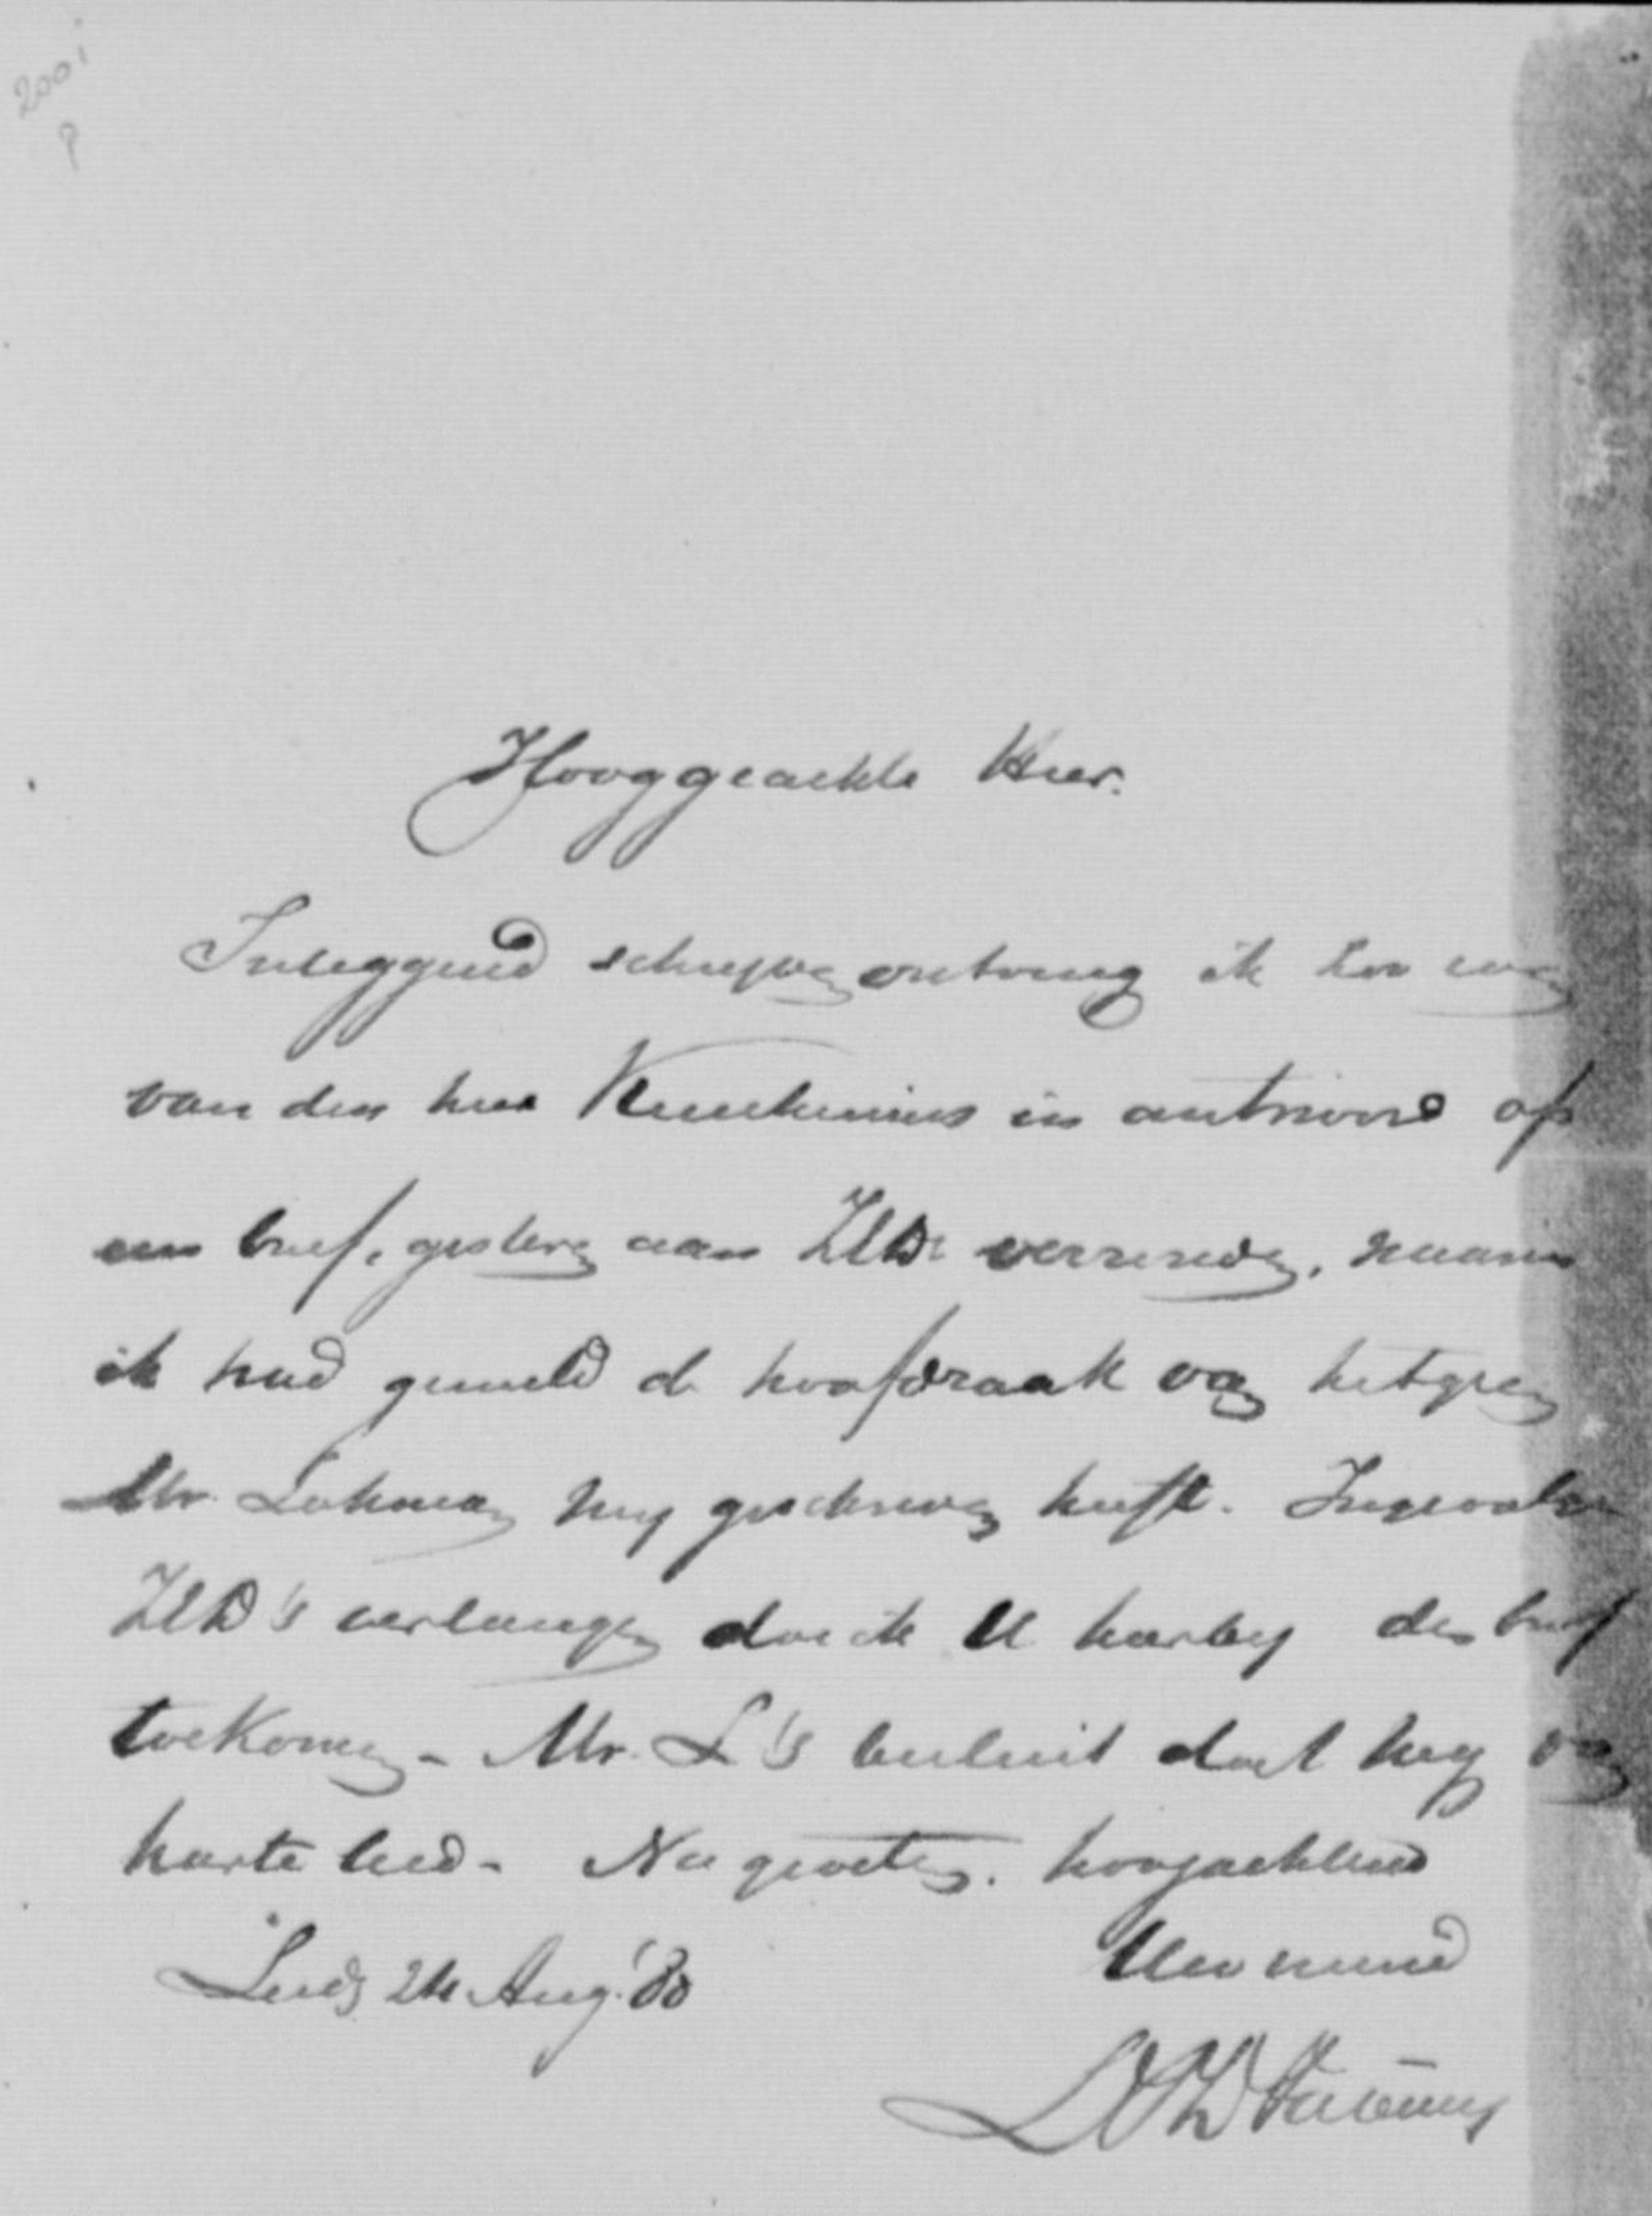 2001
P
Hooggeachte Heer.
Inleggend schrijven ontving ik
van den heer Keuchenius in antwoord op
een brief, gisteren aan ZEd. verzonden, waarin
ik had gemeld de hoofdzaak van hetgeen
Mr. Lohman mij geschreven heeft. Ingevolge
ZEd's verlangen doe ik U hierbij den brief
toekomen - Mr. L's besluit doet mij van
harte leed - Na groeten. hoogachtend
Uw vriend
Leid 24 Aug. '80